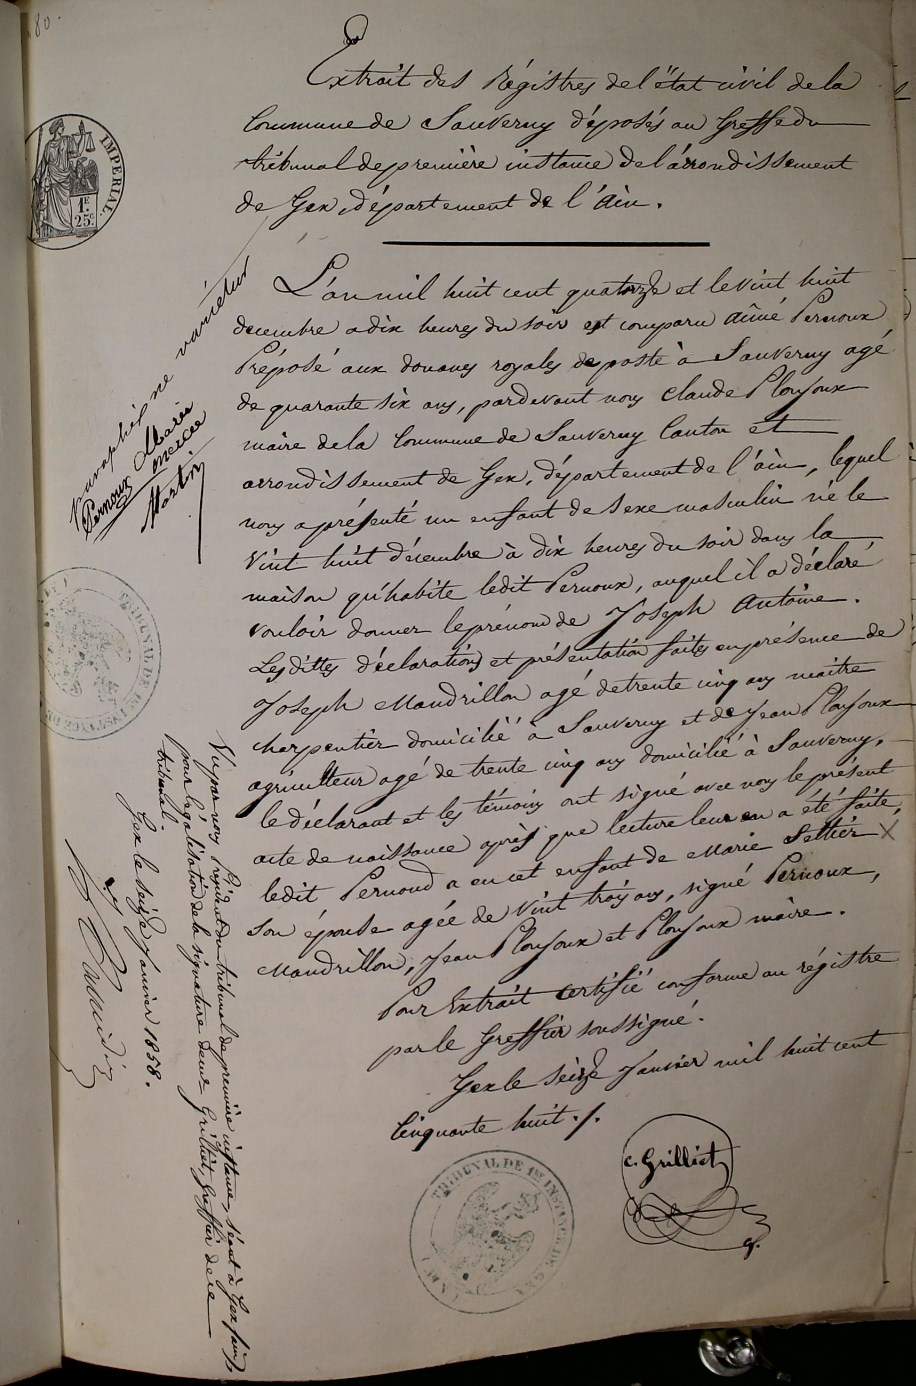 80.
Extrait des Régistres de l'état civil de la
Commune de Sauverny déposés au Greffe du
tribunal de première instance de l'arrondissement
de Gex, département de l'Ain.
IMPERIAL.
1F.
25c
L'an mil huit cent quatorze et le vint huit
decembre a dix heures du soir est comparu Aîmé Pernoux
Préposé aux douanes royales de poste à Sauverny agé
de quarante six ans, pardevant nous Claude Plonjoux
maire de la Commune de Sauverny Canton et
arrondissement de Gex, département de l'ain, lequel
nous a présenté un enfant de sexe masculin né le
vint huit décembre à dix heures du soir dans la
maison qu'habite ledit Pernoux, auquel il a déclaré
vouloir donner le prénom de Joseph Antoine.
Lesdittes déclarations et présentation faites en présence de
Joseph Mandrillon agé de trente cinq ans maitre
charpentier domicilié à Sauverny et de Jean Plonjoux
agriculteur agé de trente cinq ans domicilié à Sauverny,
le déclarant et les témoins ont signé avec nous le présent
acte de naissance après que lecture leur en a été faite,
ledit Pernoud a eu cet enfant de Marie Settier X
son épouse agée de vint trois ans, signé Pernoux,
Mandrillon, Jean Plonjoux et Plonjoux maire.
Pour Extrait certifié conforme au régistre
par le Greffier soussigné.
Gex le seize Janvier mil huit cent
Cinquante huit ./.
C. Grilliet
TRIBUNAL DE 1ERE INSTANCE DE GEX
paraphé ne varietur
Pernoux Marie
Mercier
Martin
TRIBUNAL DE 1ERE INSTANCE DE
Vu par nous Président du tribunal de première instance, séant à Gex
pour légalisation de la signature de Mr Grilliet, Greffier de ce
tribunal.
Gex le seize Janvier 1858.